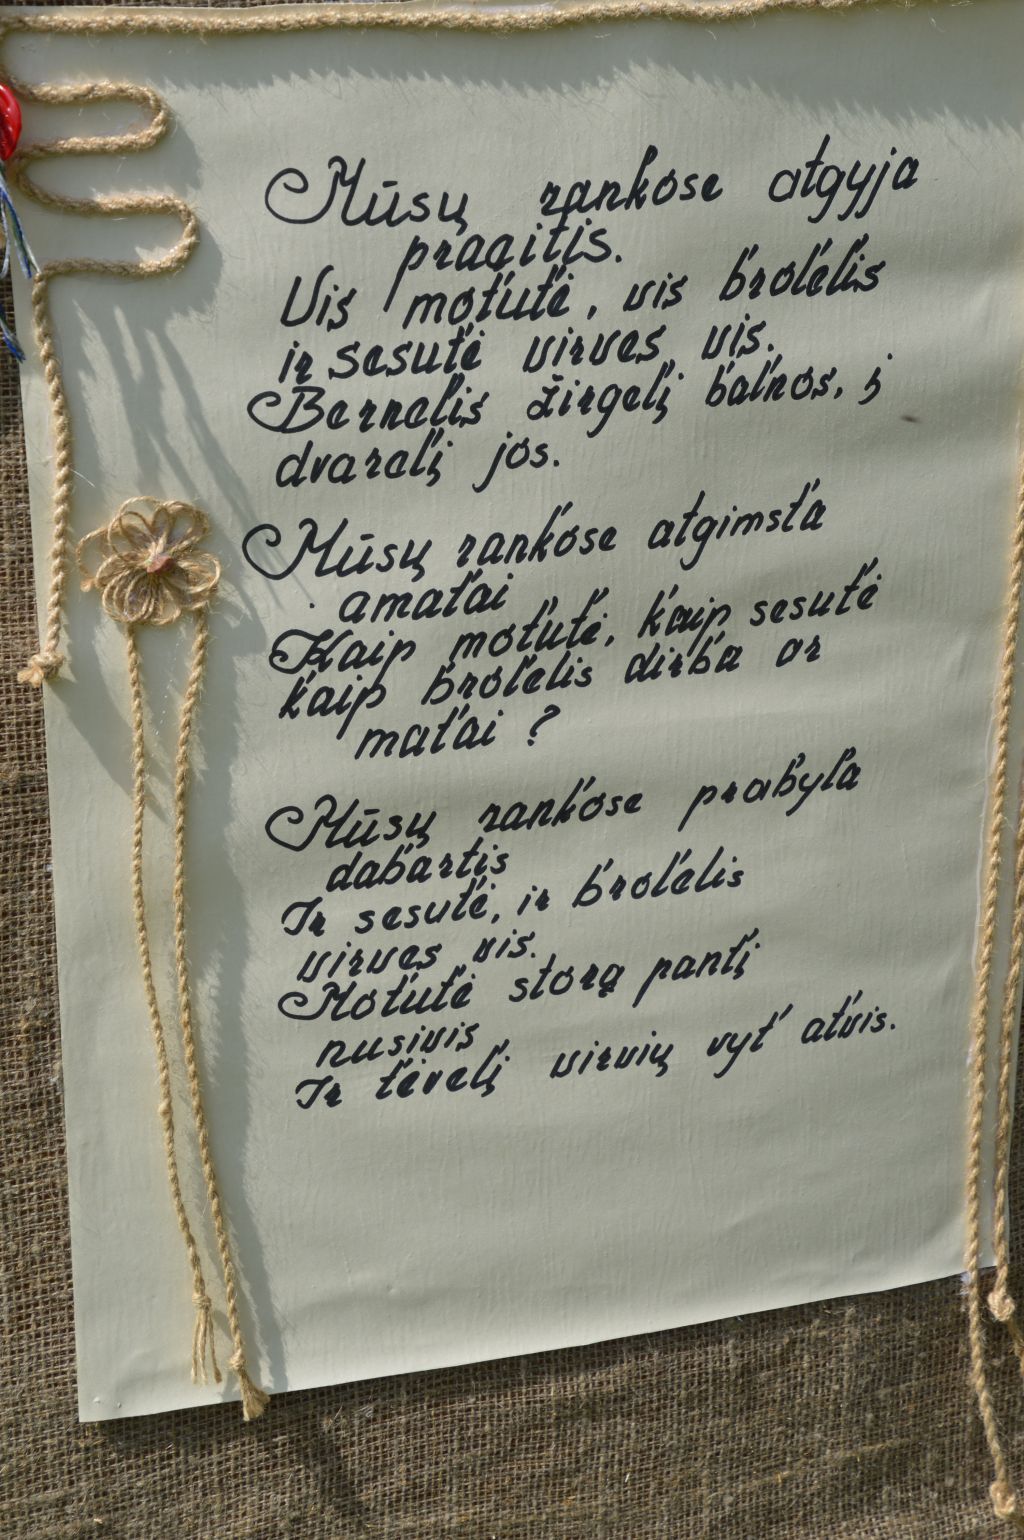 Mūsų rankose atgyja
praeitis.
Vis motutė, vis brolelis
ir sesutė virves vis.
Bernelis žirgelį balnos, į
dvarelį jos.
Mūsų rankose atgimsta
amatai
Kaip motutė, kaip sesutė
kaip brolelis dirba ar
matai ?
Mūsų rankose prabyla
dabartis
Ir sesutė, ir brolelis
virves vis.
Motutė storą pantį
nusivis
Ir tėvelį virvių vyt atvis.